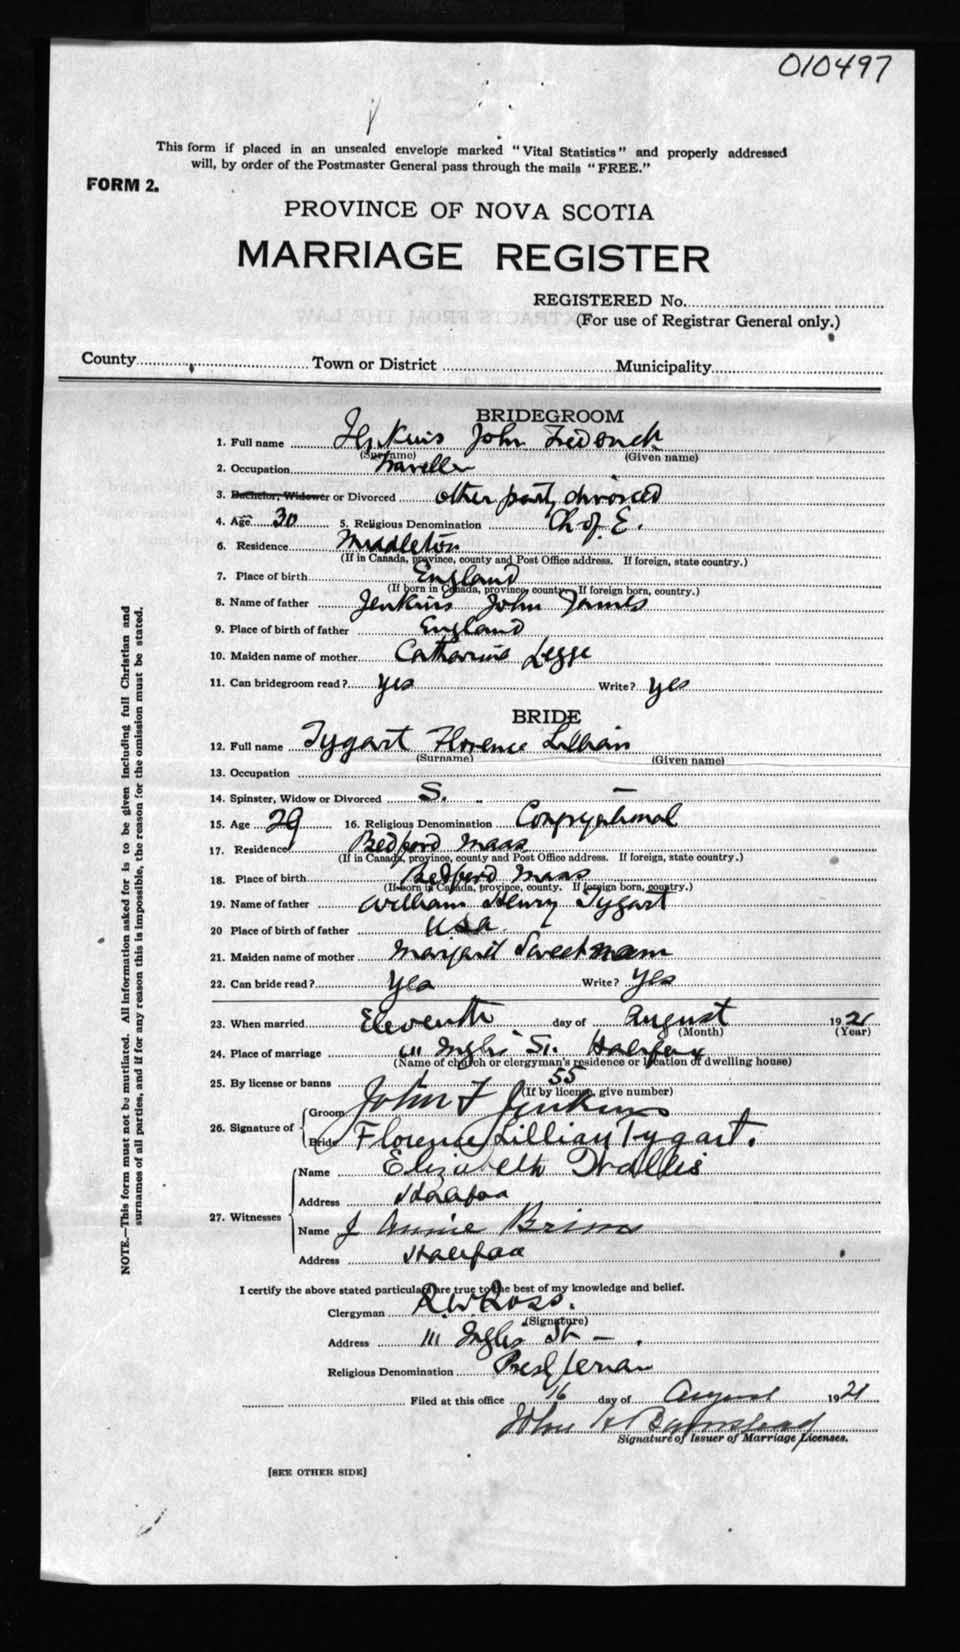 010497
This form if placed in an unsealed envelope marked "Vital Statistics" and properly addressed
will, by order of the Postmaster General pass through the mails "FREE."
FORM 2.
PROVINCE OF NOVA SCOTIA
MARRIAGE REGISTER
REGISTERED No.
(For use of Registrar General only.)
County Town or District Municipality
BRIDEGROOM
1. Full name Jenkins John Frederick
(Surname) (Given name)
2. Occupation Traveller
3. Bachelor, Widower or Divorced other party divorced
4. Age 30 5. Religious Denomination Ch. of E.
6. Residence Middleton
(If in Canada, province, county and Post Office address. If foreign, state country.)
7. Place of birth England
(If born in Canada, province, county. If foreign born, country.)
8. Name of father Jenkins John James
9. Place of birth of father England
10. Maiden name of mother Catharine Legge
11. Can bridegroom read? yes Write? yes
BRIDE
12. Full name Tygart Florence Lillian
(Surname) (Given name)
13. Occupation
14. Spinster, Widow or Divorced S. —
15. Age 29 16. Religious Denomination Congregational
17. Residence Bedford Mass
(If in Canada, province, county and Post Office address. If foreign, state country.)
18. Place of birth Bedford Mass
(If born in Canada, province, county. If foreign born, country.)
19. Name of father William Henry Tygart
20 Place of birth of father USA.
21. Maiden name of mother Margaret Sweetnam
22. Can bride read? Yes Write? Yes
23. When married Eleventh day of August 1921
(Month) (Year)
24. Place of marriage 111 Inglis St. Halifax
(Name of church or clergyman's residence or location of dwelling house)
25. By license or banns 55
(If by license, give number)
26. Signature of Groom John F Jenkins
Bride Florence Lillian Tygart.
27. Witnesses Name Elizabeth Wallis
Address Halifax
Name J Annie Brims
Address Halifax
I certify the above stated particulars are true to the best of my knowledge and belief.
Clergyman R.W. Ross.
(Signature)
Address 111 Inglis St — .
Religious Denomination Presbyterian
Filed at this office 16 day of August 1921
John H Barnstead
Signature of Issuer of Marriage Licenses.
[SEE OTHER SIDE]
NOTE.—This form must not be mutilated. All information asked for is to be given including full Christian and
surnames of all parties, and if for any reason this is impossible, the reason for the omission must be stated.